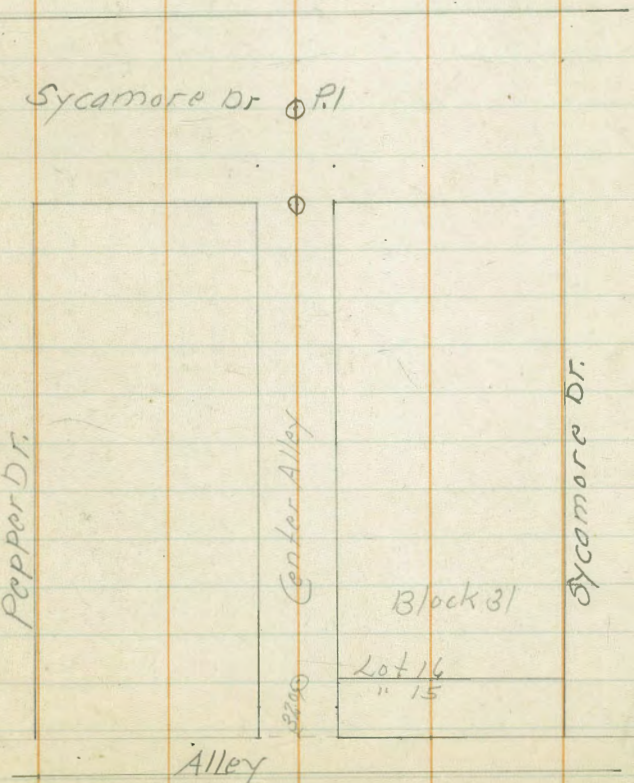 Sycamore Dr P.I
Pepper Dr.
Center Alley
Sycamore Dr.
Block 31
Lot 16
" 15
Alley